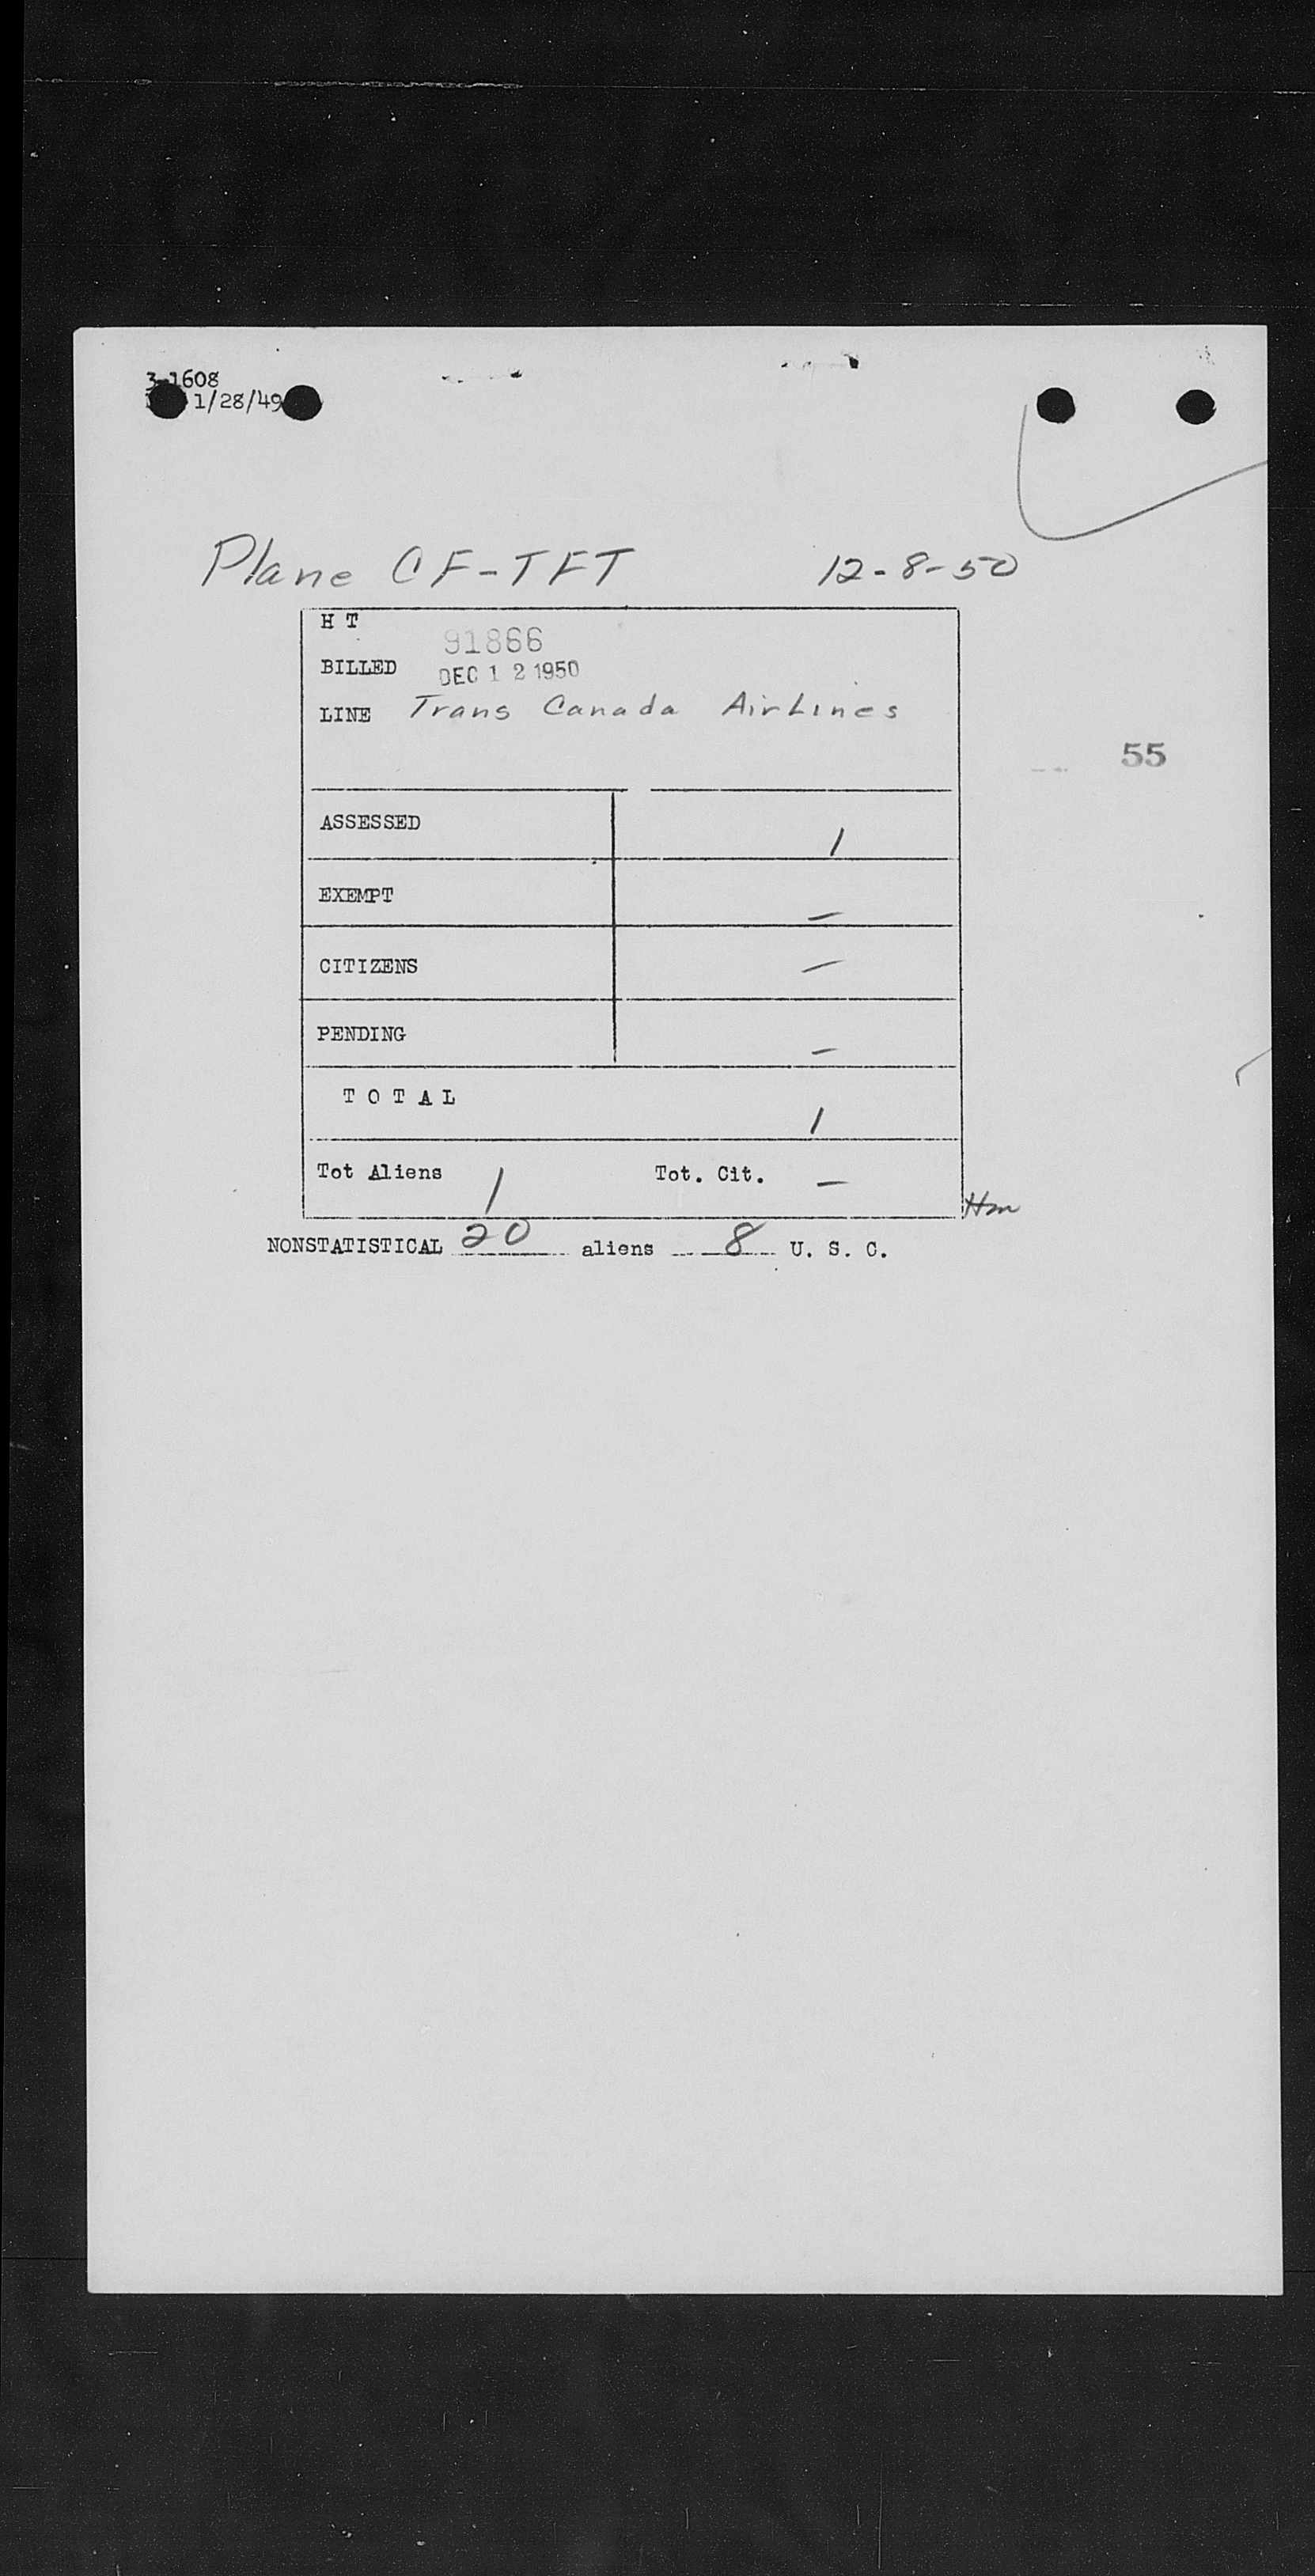 3-1608
1/28/49
Plane CF-TFT 12-8-50
H T
91866
BILLED DEC 12 1950
LINE Trans Canada AirLines
55
ASSESSED 1
EXEMPT —
CITIZENS —
PENDING —
T O T A L 1
Tot Aliens 1 Tot. Cit. —
Hm
NONSTATISTICAL 20 aliens 8 U. S. C.